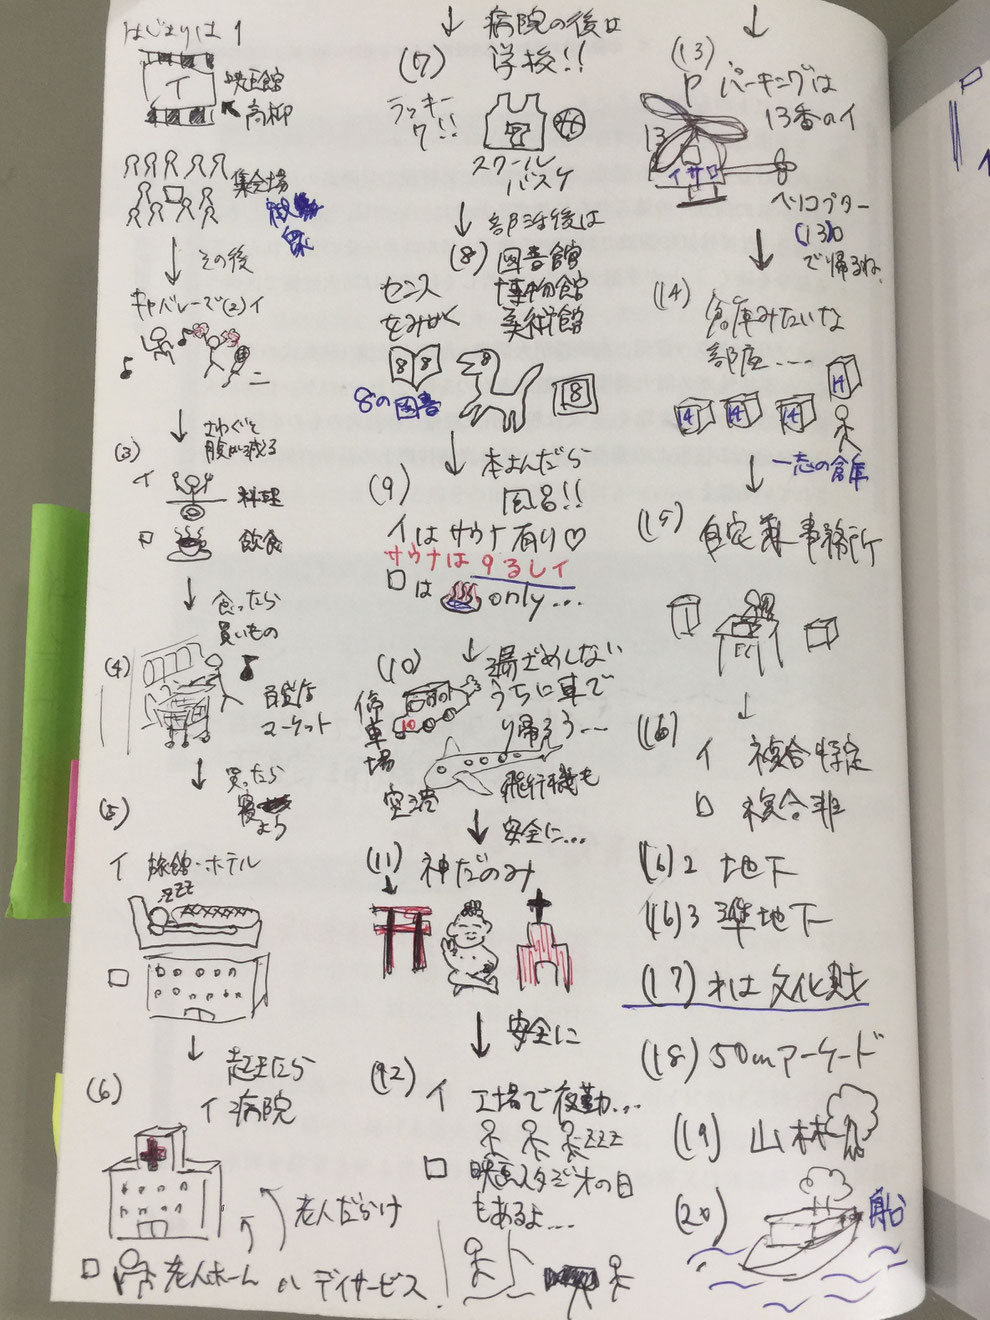 はじまりは1
イ
映画館
高柳
集会場
その後
キャバレーで(2)イ
さわぐと
腹が減る
(3)
イ
料理
ロ
飲食
食ったら
買いもの
(4)
百貨店
マーケット
買ったら
寝
よう
(5)
イ 旅館・ホテル
ZZZ
ロ
起きたら
(6)
イ病院
老人だかけ
ロ
老人ホーム
ハ デイサービス
病院の後は
(7)
学校!!
ラッキー
7!!
7
スクール
バスケ
部活後は
(8)
図書館
博物館
美術館
センス
をみがく
8 8
8
8
8の図書
本よんだら
風呂!!
(9)
イはサウナ有り♡
サウナは9るしイ
ロは
only...
(10)
湯ざめしないうちに車で
り帰ろう...
停車場
10
空港
飛行機も
安全に...
(11)
神だのみ
安全に
(12)
イ
工場で夜勤...
ZZZ
ロ
映画スタジオの日
もあるよ...
(13)
P パーキングは
13番のイ
13
イサロ
ヘリコプター
(13)ロ
で帰るね
(14)
倉庫みたいな
部屋...
14
14
14
14
一志の倉庫
(15)
事務所
(16)
イ 複合特定
ロ 複合非
(16)2 地下
(16)3 準地下
(17)オは文化財
(18)50mアーケード
(19)山林
(20)
船